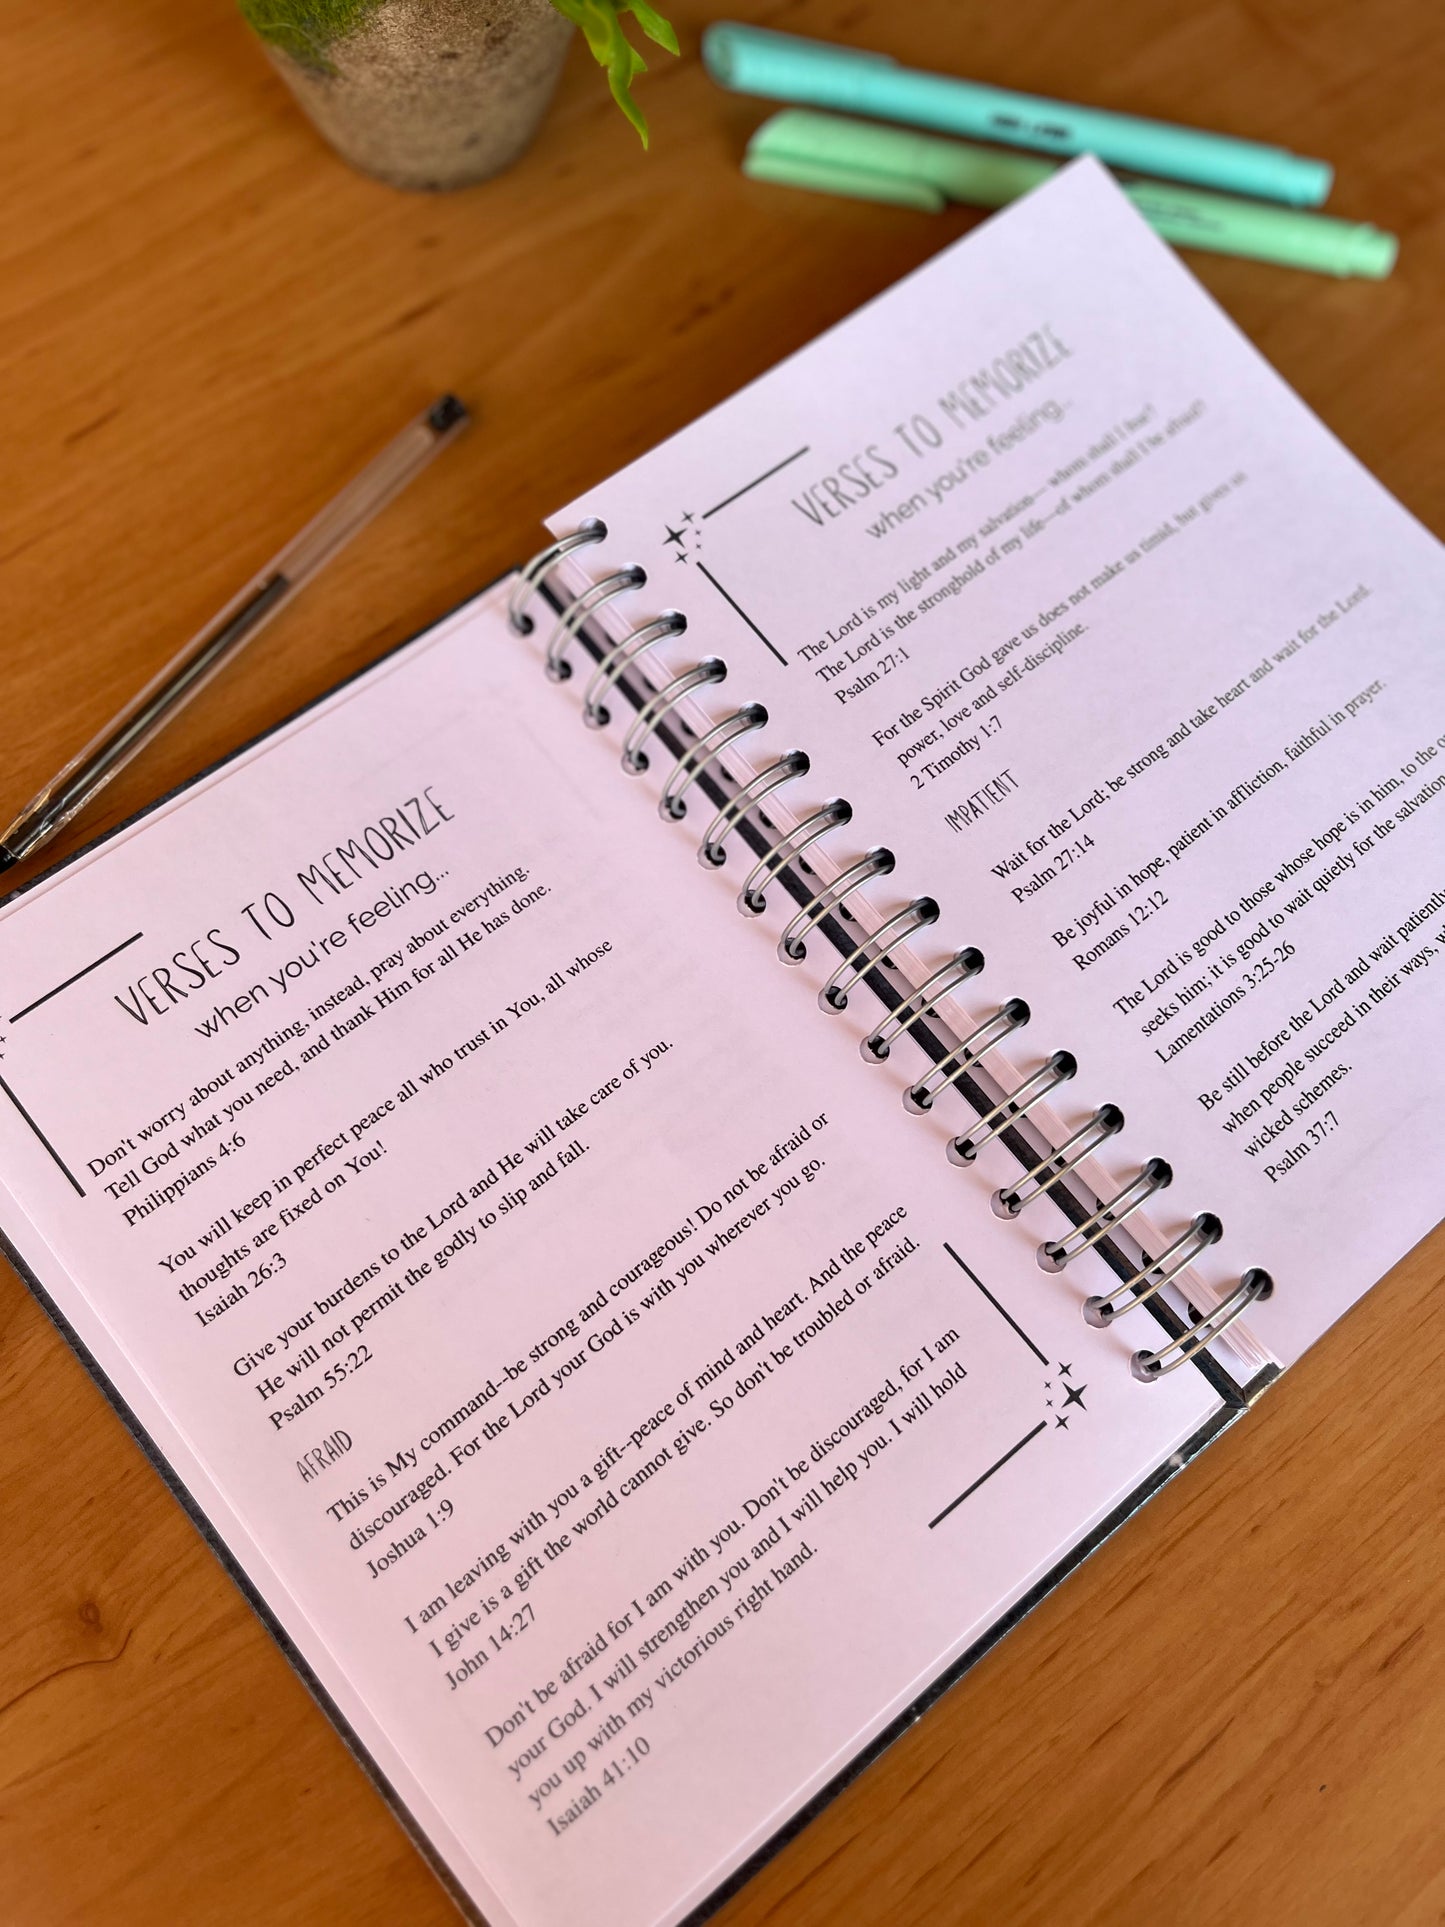 VERSES TO MEMORIZE
when you're feeling...
Don't worry about anything, instead, pray about everything.
Tell God what you need, and thank Him for all He has done.
Philippians 4:6
You will keep in perfect peace all who trust in You, all whose
thoughts are fixed on You!
Isaiah 26:3
Give your burdens to the Lord and He will take care of you.
He will not permit the godly to slip and fall.
Psalm 55:22
AFRAID
This is My command--be strong and courageous! Do not be afraid or
discouraged. For the Lord your God is with you wherever you go.
Joshua 1:9
I am leaving with you a gift--peace of mind and heart. And the peace
I give is a gift the world cannot give. So don't be troubled or afraid.
John 14:27
Don't be afraid for I am with you. Don't be discouraged, for I am
your God. I will strengthen you and I will help you. I will hold
you up with my victorious right hand.
Isaiah 41:10
VERSES TO MEMORIZE
when you're feeling...
The Lord is my light and my salvation— whom shall I fear?
The Lord is the stronghold of my life—of whom shall I be afraid?
Psalm 27:1
For the Spirit God gave us does not make us timid, but gives us
power, love and self-discipline.
2 Timothy 1:7
IMPATIENT
Wait for the Lord; be strong and take heart and wait for the Lord.
Psalm 27:14
Be joyful in hope, patient in affliction, faithful in prayer.
Romans 12:12
The Lord is good to those whose hope is in him, to the
seeks him; it is good to wait quietly for the salvation
Lamentations 3:25-26
Be still before the Lord and wait patiently
when people succeed in their ways,
wicked schemes.
Psalm 37:7